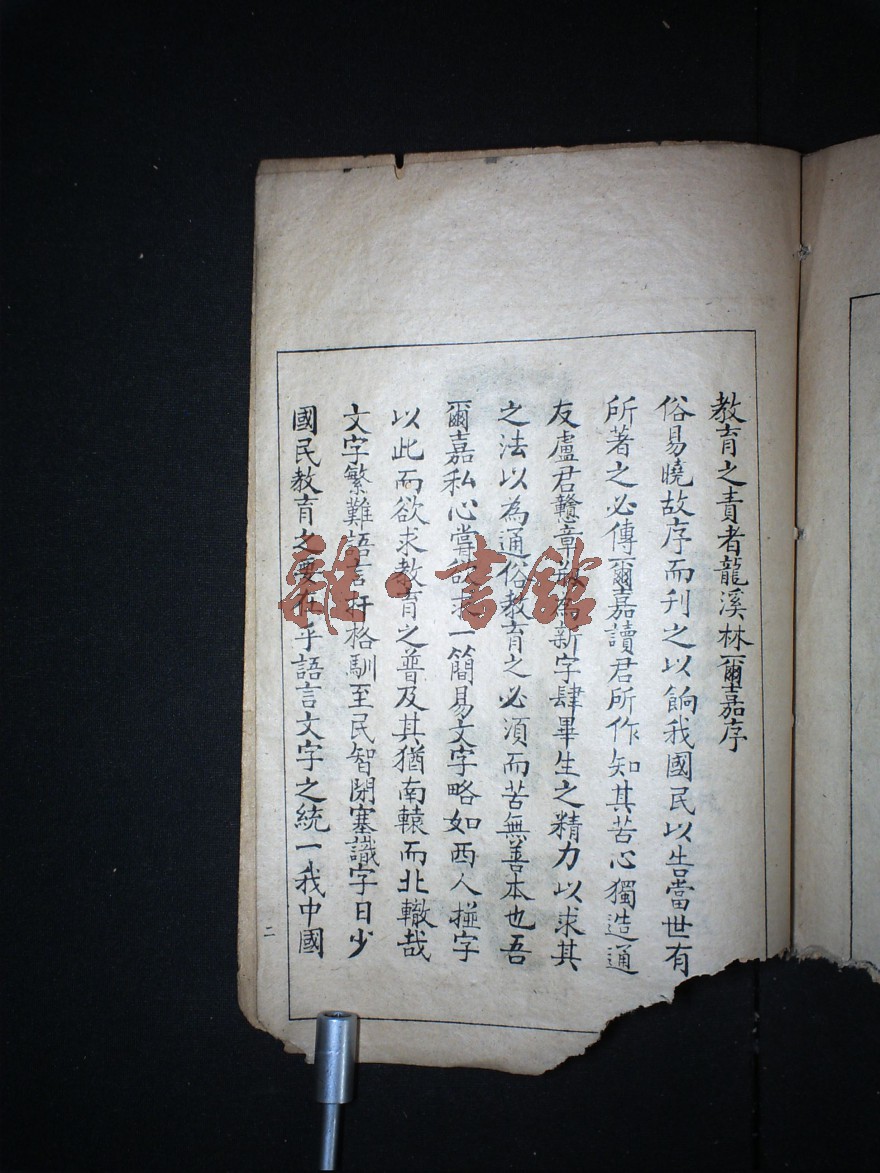 國民教育之要在乎語言文字之統一我中國
文字繁難語言扞格馴至民智閉塞識字日少
以此而欲求教育之普及其猶南轅而北轍哉
爾嘉私心嘗欲求一簡易文字略如西人掽字
之法以為通俗教育之必湏而苦無善本也吾
友盧君戇章為新字肆畢生之精力以求其
所著之必傳爾嘉讀君所作知其苦心獨造通
俗易曉故序而刋之以餉我國民以告當世有
教育之責者龍溪林爾嘉序
二
雜·書館